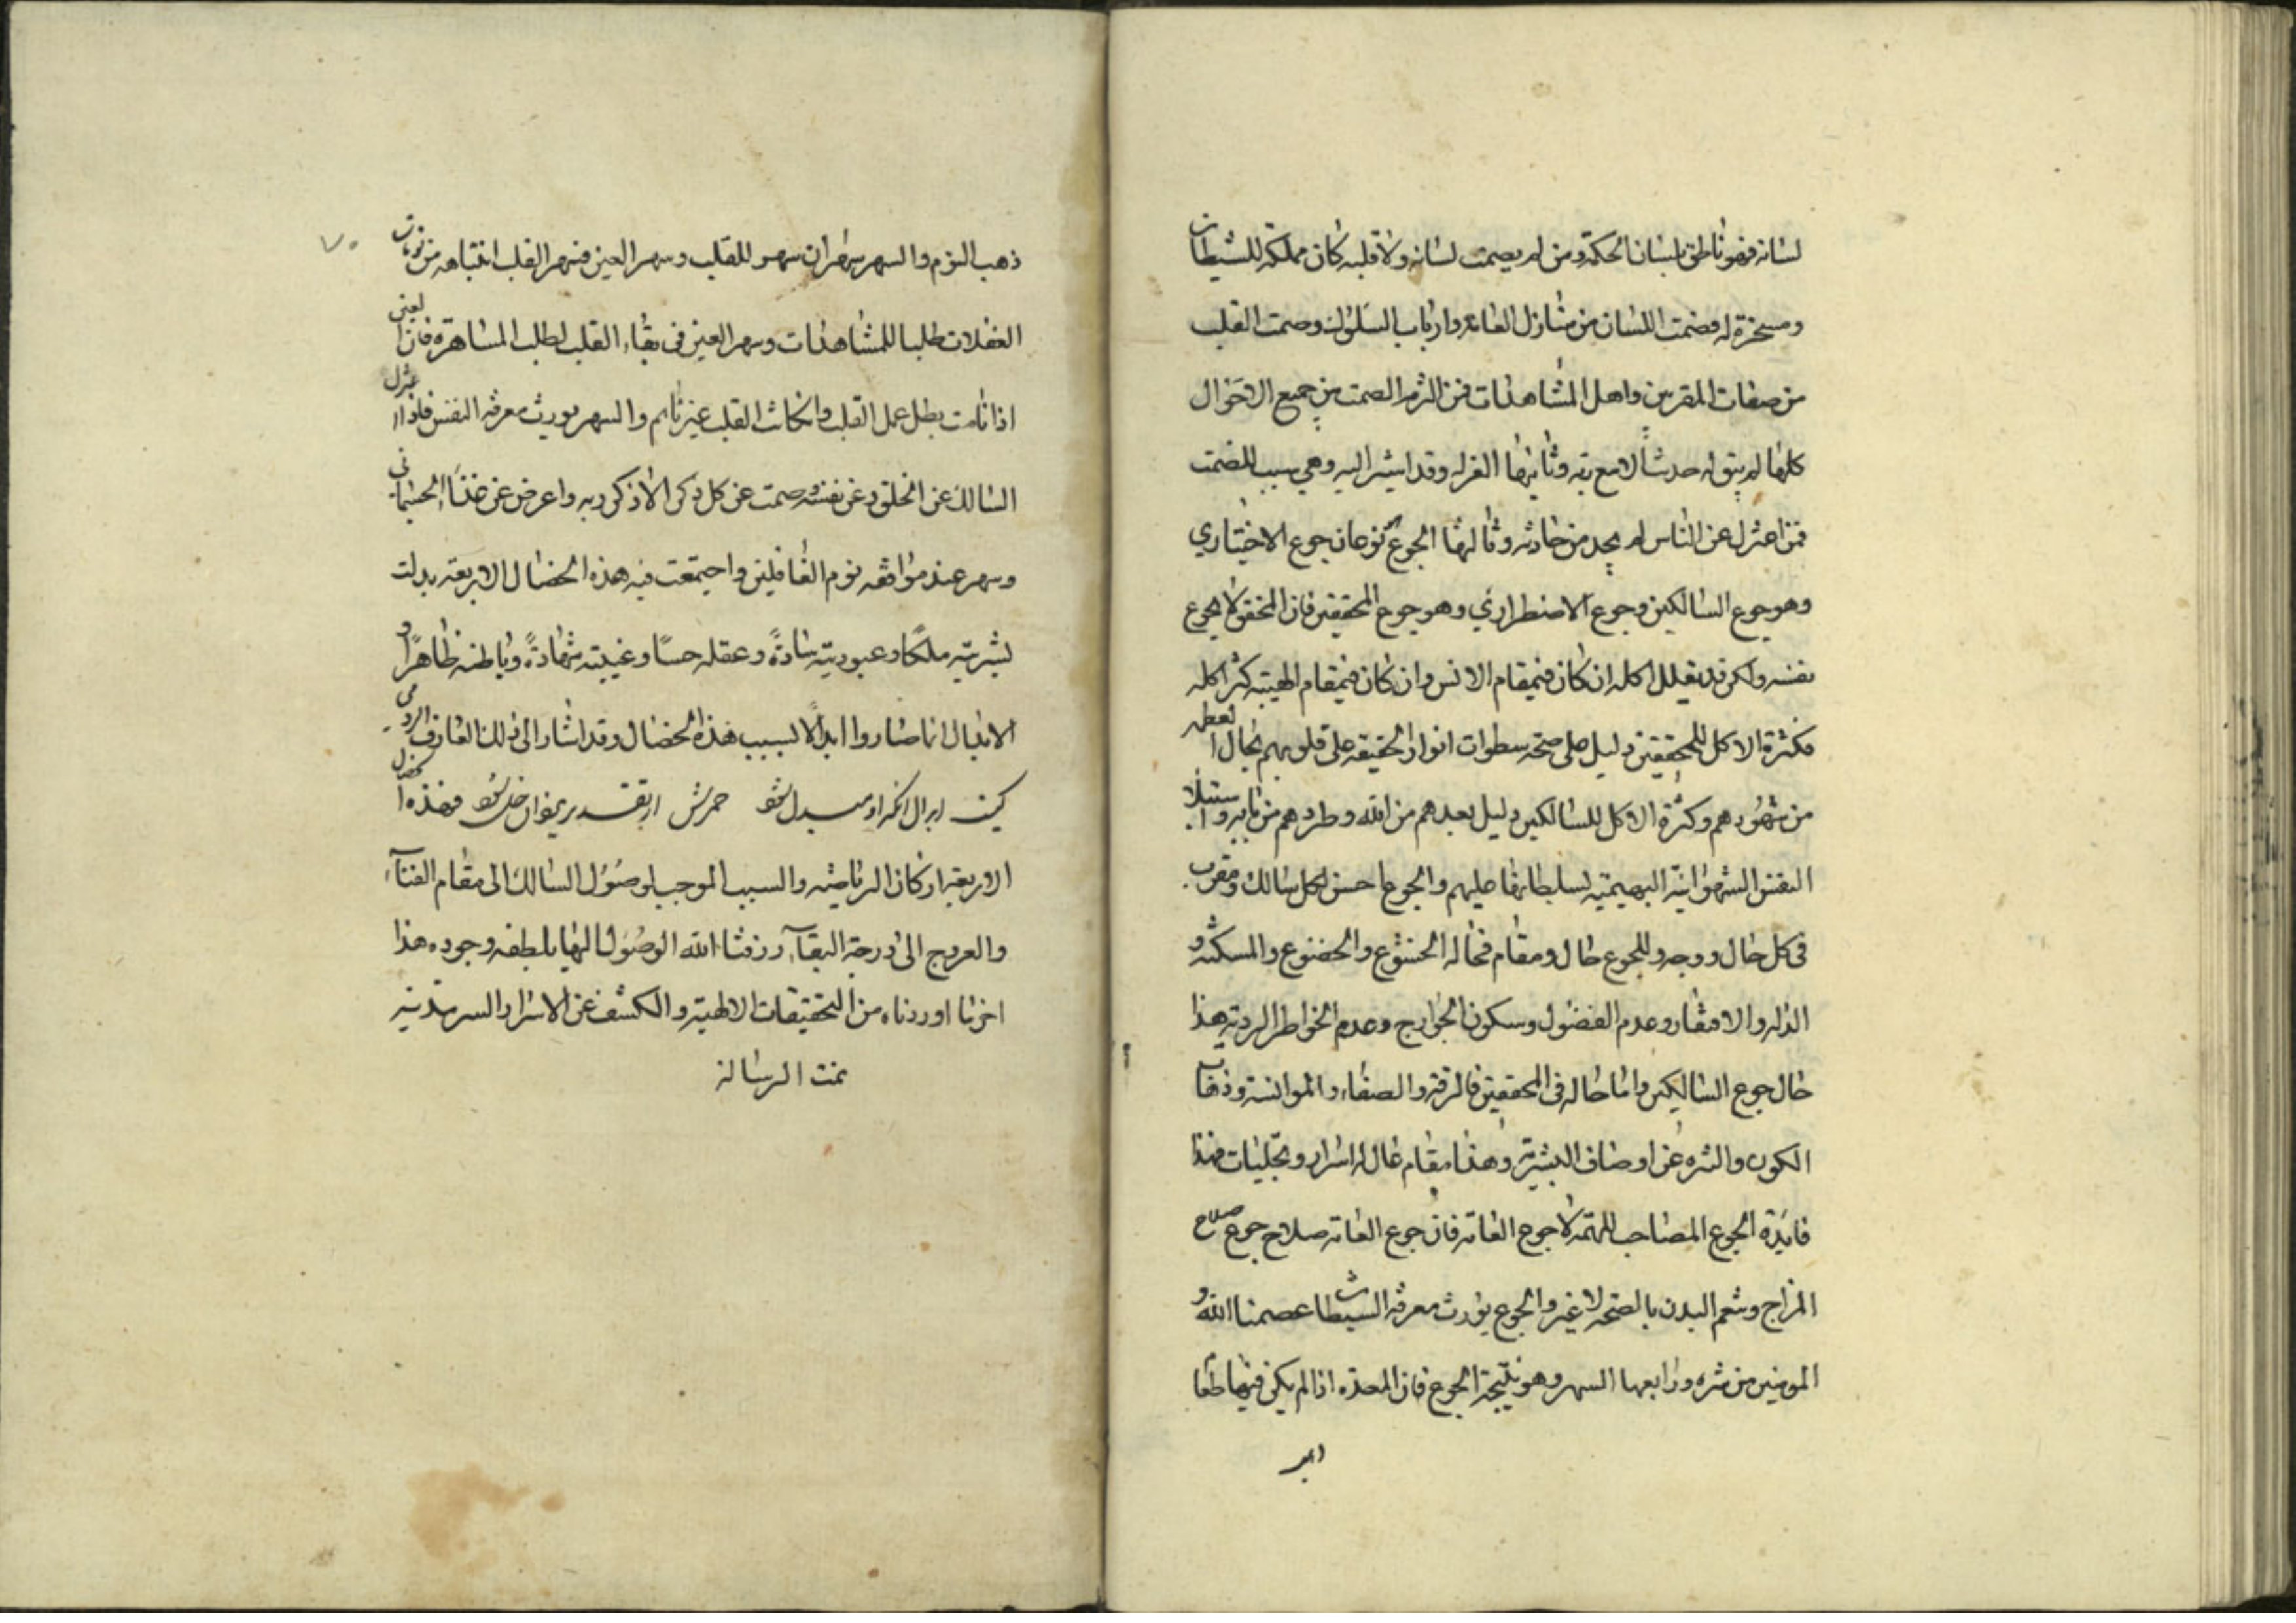 لسانه فهو ناطق بلسان الحكمة ومن لم يصمت لسانه ولا قلبه كان مملكة للشيطان
ومسخرة له فصمت اللسان من منازل العامة وارباب السلوك وصمت القلب
من صفات المقربين واهل المشاهدات فمن التزم الصمت من جميع الاحوال
كلها لم يبق له حديثا الا مع ربه وثانيها العزلة وقد اشير اليه وهي سبب للصمت
فمن اعتزل عن الناس لم يجد من حادثه وثالثها الجوع نوعان جوع الاختياري
وهو جوع السالكين وجوع الاضطراري وهو جوع المحققين فان المحقق لا يجوع
نفسه ولكن قد يقلل اكله ان كان في مقام الانس وان كان في مقام الهيبة كثر اكله
فكثرة الاكل للمحققين دليل على صحة سطوات انوار الحقيقة على قلوبهم بحال العظمة
من شهودهم وكثرة الاكل للسالكين دليل بعدهم من الله وطردهم من بابه واستيلاء
النفس الشهوانية البهيمية بسلطانها عليهم والجوع احسن لكل سالك ومقرب
في كل حال ووجه وللجوع حال ومقام فحاله الخشوع والخضوع والمسكنة و
الذلة والافتقار وعدم الفضول وسكون الجوارح وعدم الخواطر الردية هذا
حال جوع السالكين واما حاله في المحققين فالرقة والصفاء والموانسة وذهاب
الكون والتنزه عن اوصاف البشرية وهذا مقام عال له اسرار وتجليات فهذا
فايدة الجوع المصاحب للهمة لا جوع العامة فان جوع العامة صلاح جوع صلاح
المزاج وتنعم البدن بالصحة لا غير والجوع يورث معرفة الشيطان عصمنا الله و
المومنين من شره ورابعها السهر وهو نتيجة الجوع فان المعدة اذا لم يكن فيها طعام
ذهب النوم والسهر سهران سهر للقلب وسهر العين فسهر القلب انتباهه من نومات
الغفلات طلبا للمشاهدات وسهر العين في بقاء القلب لطلب المسامرة فان العين
اذا نامت بطل عمل القلب وان كان القلب غير نايم والسهر يورث معرفة النفس فاذا اعتزل
السالك عن الخلق وعن نفسه وصمت عن كل ذكر الا ذكر ربه واعرض عن غذاء الجسماني
وسهر عند موافقة نوم الغافلين واجتمعت فيه هذه الخصال الاربعة بدلت
بشريته ملكا وعبوديته سادة وعقله حسا وغيبته شهادة وباطنه ظاهرا و
الابدال انما صاروا ابدالا بسبب هذه الخصال وقد اشار الى ذلك العارف الرومي
كيست ابدال آنكه او مبدل شود خمرش از تبديل يزدان خل شود فهذه الخصال
الاربعة اركان الرياضة والسبب الموجب لوصول السالك الى مقام الفناء
والعروج الى درجة البقاء رزقنا الله الوصول اليها بلطفه وجوده هذا
اخر ما اوردناه من التحقيقات الالهية والكشف عن الاسرار السرمدية
تمت الرسالة